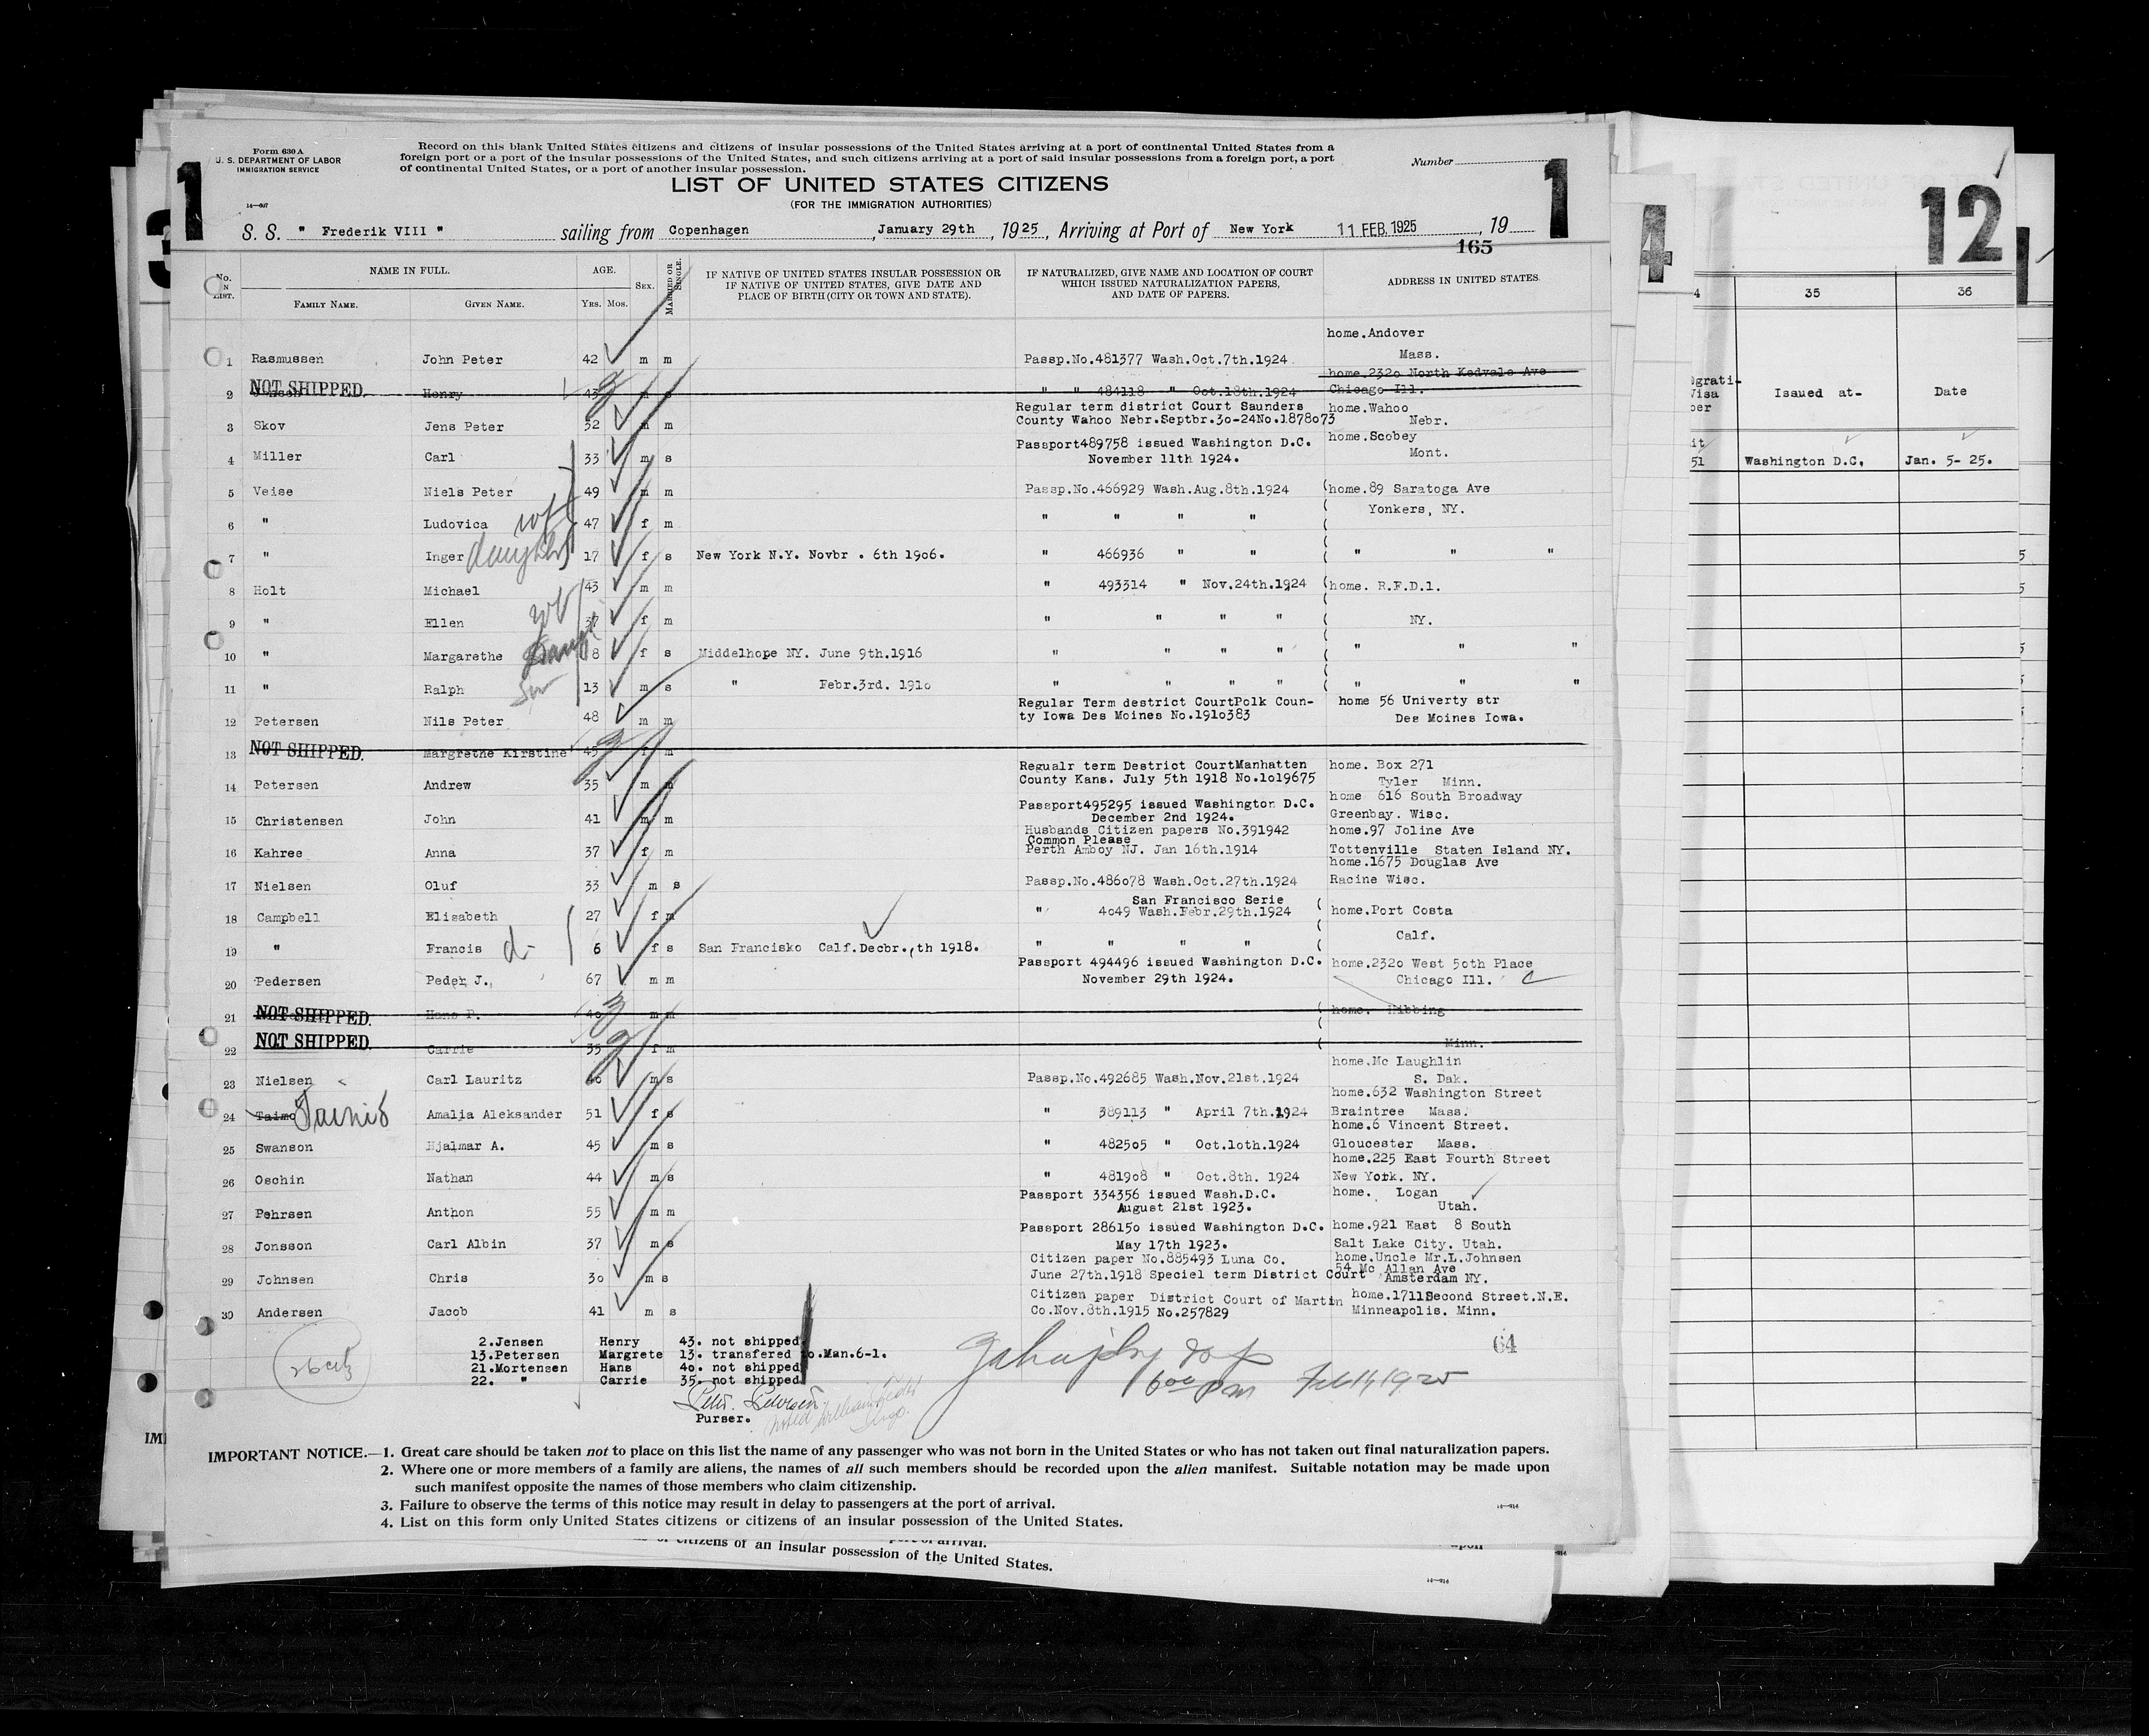 Form 630 A
U. S. DEPARTMENT OF LABOR
IMMIGRATION SERVICE
14—607
Record on this blank United States citizens and citizens of insular possessions of the United States arriving at a port of continental United States from a
foreign port or a port of the insular possessions of the United States, and such citizens arriving at a port of said insular possessions from a foreign port, a port
of continental United States, or a port of another insular possession.
Number
1 1
LIST OF UNITED STATES CITIZENS
(FOR THE IMMIGRATION AUTHORITIES)
S. S. " Frederik VIII " sailing from Copenhagen, January 29th, 1925, Arriving at Port of New York 11 FEB. 1925, 19
165
No. LIST. NAME IN FULL. AGE. SEX. MARRIED OR SINGLE. IF NATIVE OF UNITED STATES INSULAR POSSESSION OR IF NATIVE OF UNITED STATES, GIVE DATE AND PLACE OF BIRTH (CITY OR TOWN AND STATE). IF NATURALIZED, GIVE NAME AND LOCATION OF COURT WHICH ISSUED NATURALIZATION PAPERS, AND DATE OF PAPERS. ADDRESS IN UNITED STATES.
FAMILY NAME. GIVEN NAME. Yrs. Mos.
home.Andover
1 Rasmussen John Peter 42 m m Passp.No.481377 Wash.Oct.7th.1924 Mass.
home.232o North Kedvale Ave
2 NOT SHIPPED. Henry 43 m s " " 484118 " Oct.18th.1924 Chicago Ill.
Regular term district Court Saunders home.Wahoo
3 Skov Jens Peter 52 m m County Wahoo Nebr.Septbr.3o-24No.1878o73 Nebr.
Passport489758 issued Washington D.C. home.Scobey
4 Miller Carl 33 m s November 11th 1924. Mont.
5 Veise Niels Peter 49 m m Passp.No.466929 Wash.Aug.8th.1924 (home.89 Saratoga Ave
6 " Ludovica 47 f m " " " " Yonkers, NY.
7 " Inger daughter 17 f s New York N.Y. Novbr . 6th 19o6. " 466936 " " " " "
8 Holt Michael 43 m m " 493314 " Nov.24th.1924 (home. R.F.D.1.
9 " Ellen 37 f m " " " " NY.
10 " Margarethe 8 f s Middelhope NY. June 9th.1916 " " " " " " "
11 " Ralph son 13 m s " Febr.3rd. 191o " " " " " " "
Regular Term destrict CourtPolk Coun- home 56 Univerty str
12 Petersen Nils Peter 48 m m ty Iowa Des Moines No.191o383 Des Moines Iowa.
13 NOT SHIPPED. Margrethe Kirstine 45 f m
Regualr term Destrict CourtManhatten home. Box 271
14 Petersen Andrew 35 m m County Kans. July 5th 1918 No.1o19675 Tyler Minn.
Passport495295 issued Washington D.C. home 616 South Broadway
15 Christensen John 41 m m December 2nd 1924. Greenbay. Wisc.
Husbands Citizen papers No.391942 home.97 Joline Ave
Common Please
16 Kahree Anna 37 f m Perth Amboy NJ. Jan 16th.1914 Tottenville Staten Island NY.
home.1675 Douglas Ave
17 Nielsen Oluf 33 m s Passp.No.486o78 Wash.Oct.27th.1924 Racine Wisc.
San Francisco Serie
18 Campbell Elisabeth 27 f m " 4o49 Wash.Febr.29th.1924 (home.Port Costa
19 " Francis d- 6 f s San Francisko Calf.Decbr.,th 1918. " " " " Calf.
Passport 494496 issued Washington D.C. home.232o West 5oth Place
20 Pedersen Peder J. 67 m m November 29th 1924. Chicago Ill. C
21 NOT SHIPPED. Hans P. 40 m m (home. Hibbing
22 NOT SHIPPED. Carrie 35 f m ( Minn.
home.Mc Laughlin
23 Nielsen Carl Lauritz 46 m s Passp.No.492685 Wash.Nov.21st.1924 S. Dak.
home.632 Washington Street
24 Taimo Amalia Aleksander 51 f s " 389113 " April 7th.1924 Braintree Mass.
home.6 Vincent Street.
25 Swanson Hjalmar A. 45 m s " 4825o5 " Oct.1oth.1924 Gloucester Mass.
home.225 East Fourth Street
26 Oschin Nathan 44 m s " 4819o8 " Oct.8th. 1924 New York. NY.
Passport 334356 issued Wash.D.C. home. Logan
27 Pehrsen Anthon 55 m m August 21st 1923. Utah.
Passport 28615o issued Washington D.C. home.921 East 8 South
28 Jonsson Carl Albin 37 m s May 17th 1923. Salt Lake City. Utah.
Citizen paper No.885493 Luna Co. home.Uncle Mr.L.Johnsen
54 Mc Allan Ave
29 Johnsen Chris 3o m s June 27th.1918 Speciel term District Court Amsterdam NY.
Citizen paper District Court of Martin home.1711Second Street.N.E.
30 Andersen Jacob 41 m s Co.Nov.8th.1915 No.257829 Minneapolis. Minn.
2.Jensen Henry 43. not shipped
13.Petersen Margrete 13. transfered to.Man.6-1.
21.Mortensen Hans 4o. not shipped
22. " Carrie 35. not shipped
64
6 00 PM Feb 11, 1925
Peter Petersen.
Purser.
IMPORTANT NOTICE.—1. Great care should be taken not to place on this list the name of any passenger who was not born in the United States or who has not taken out final naturalization papers.
2. Where one or more members of a family are aliens, the names of all such members should be recorded upon the alien manifest. Suitable notation may be made upon
such manifest opposite the names of those members who claim citizenship.
3. Failure to observe the terms of this notice may result in delay to passengers at the port of arrival.
4. List on this form only United States citizens or citizens of an insular possession of the United States.
14—914
citizens of an insular possession of the United States.
3
4
12
35 36
Issued at- Date
51 Washington D.C. Jan. 5- 25.